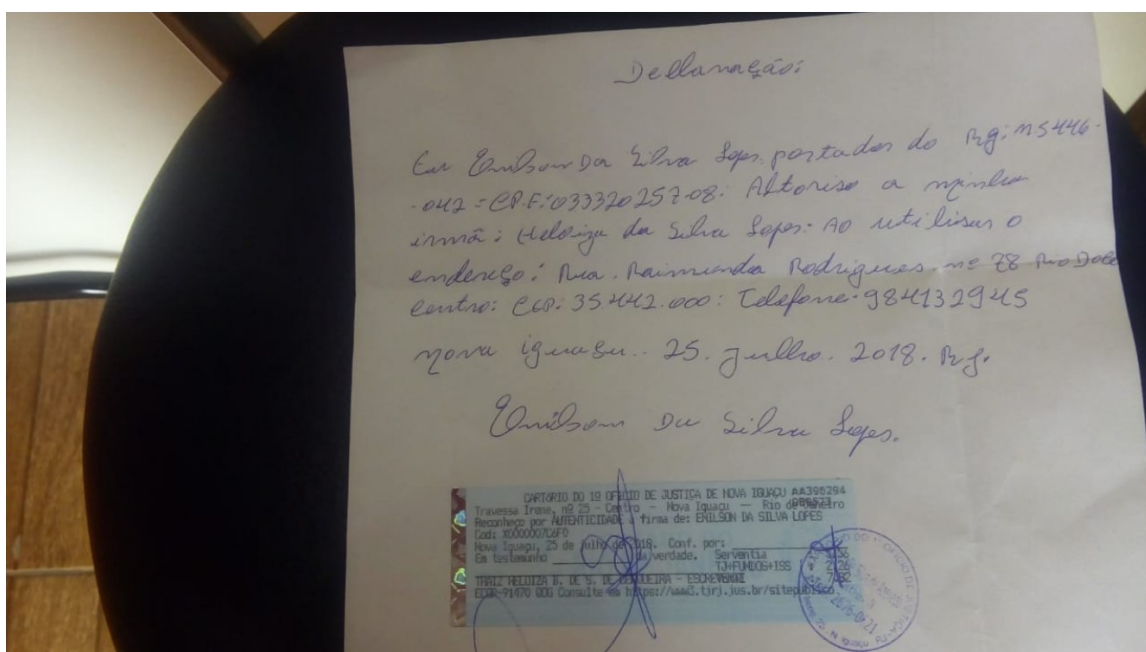 Declaração:
Eu Enilson Da Silva Lopes. portador do Rg: M5446-
-042 = CP.F: 033320257-08: Altoriso a minha
irmã: Heloiza da Silva Lopes: Ao utilisar o
endereço: Rua. Raimunda Rodrigues. nº 78 Rio Doce
centro: CEP: 35.442.000: Telefone: 984132945
nova iguasu.. 25. Julho. 2018. Rj.
Enilson Da Silva Lopes.
CARTÓRIO DO 1º OFÍCIO DE JUSTIÇA DE NOVA IGUAÇU AA396294
Travessa Irene, nº 25 - Centro - Nova Iguaçu -- Rio de Janeiro
Reconheço por AUTENTICIDADE a firma de: ENILSON DA SILVA LOPES
Cod:
Nova Iguaçu, 25 de julho de 2018. Conf. por:
Em testemunho da verdade. Serventia
TJ+FUNDOS+ISS
HELOIZA B. DE S. DE
Consulte em https://www3.tjrj.jus.br/sitepublico